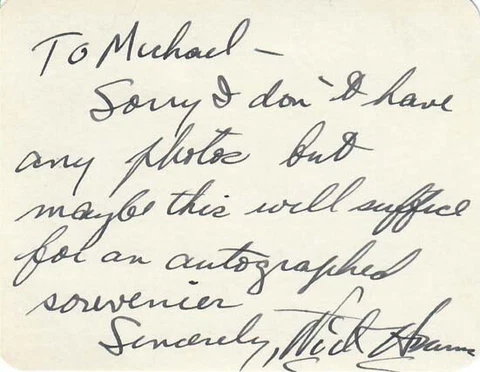 To Michael –
Sorry I don't have
any photos but
maybe this will suffice
for an autographed
souvenier
Sincerely,